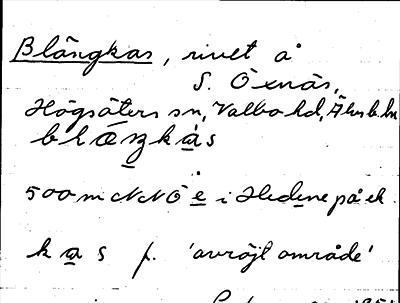 Blängkas, rivet å
S. Öxnäs,
Högsäters sn, Valbo hd, Älvsb. ln
blæŋkàs
500 m NNÖ e i Hedene på ek.
kas f. 'avröjt område'